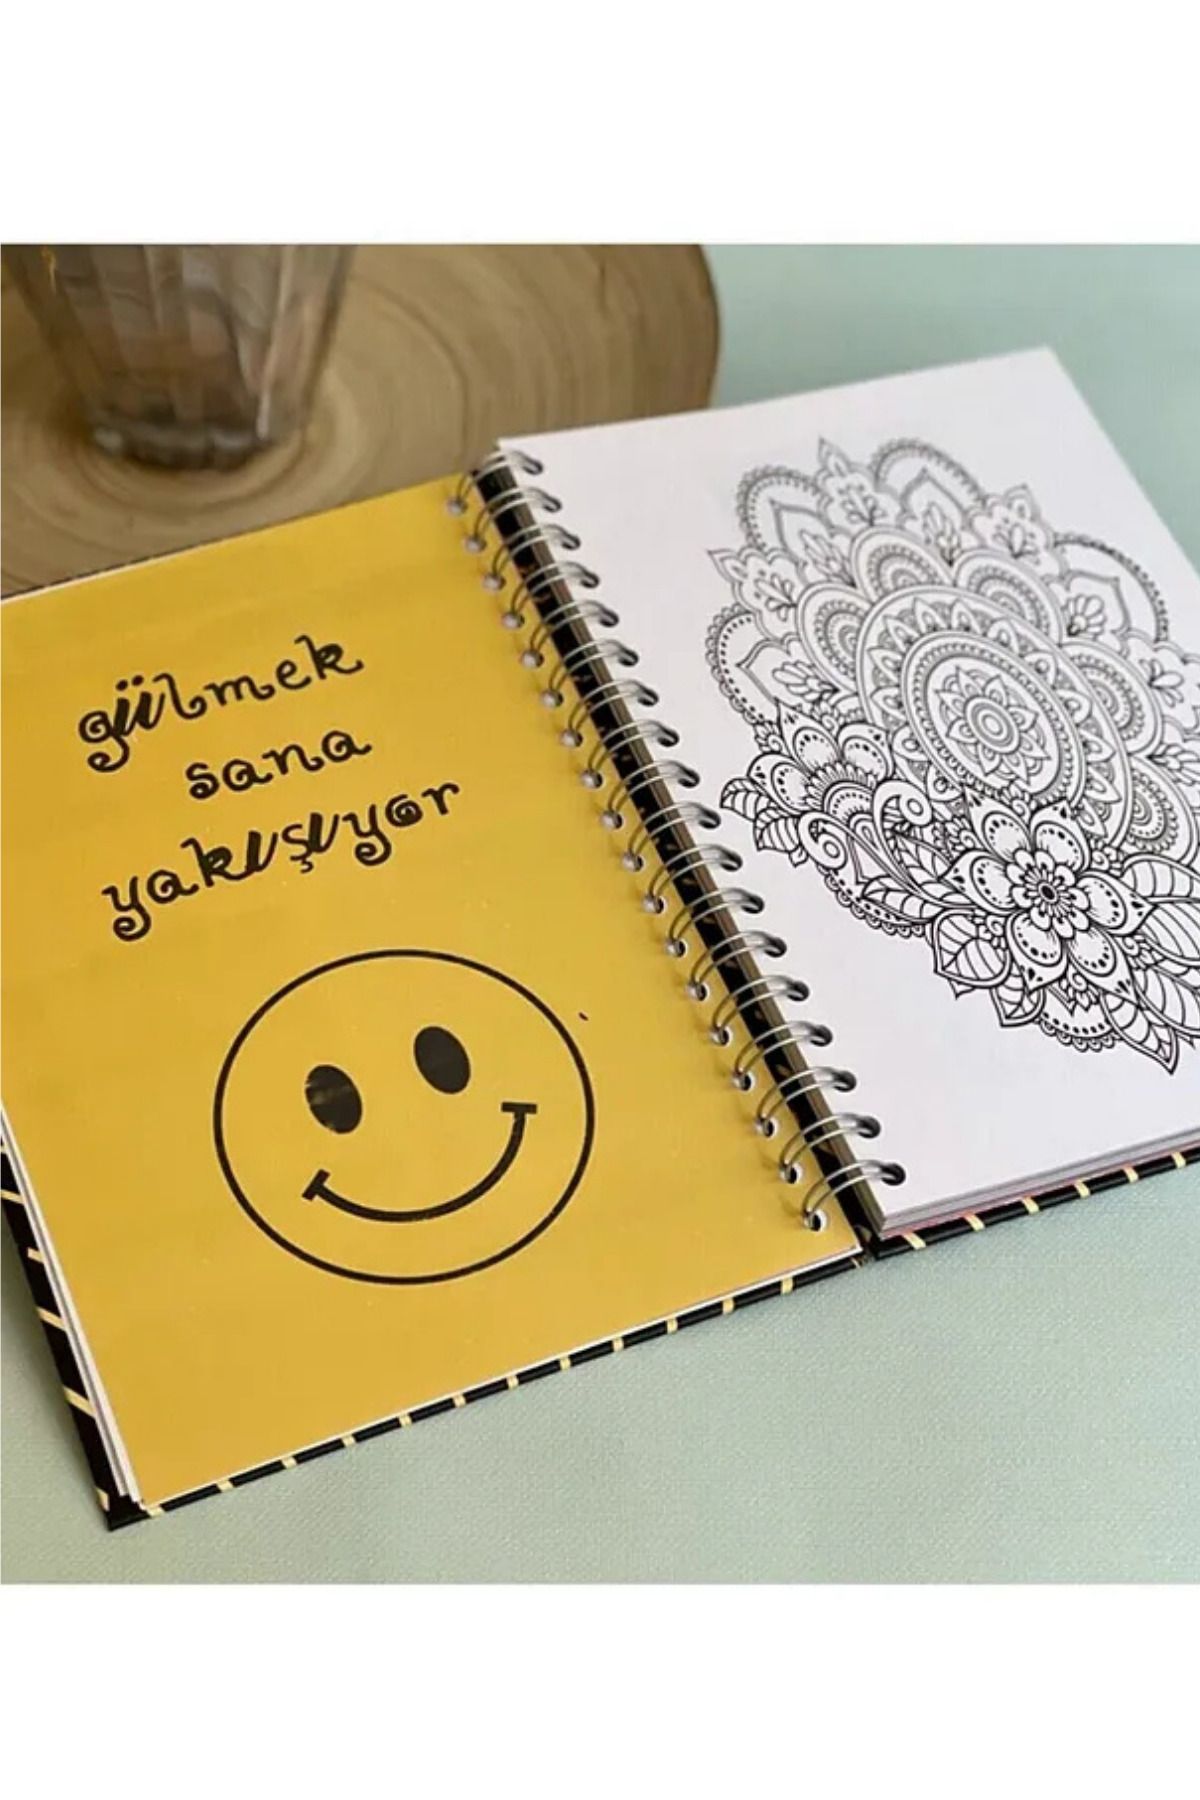 gülmek
sana
yakışıyor